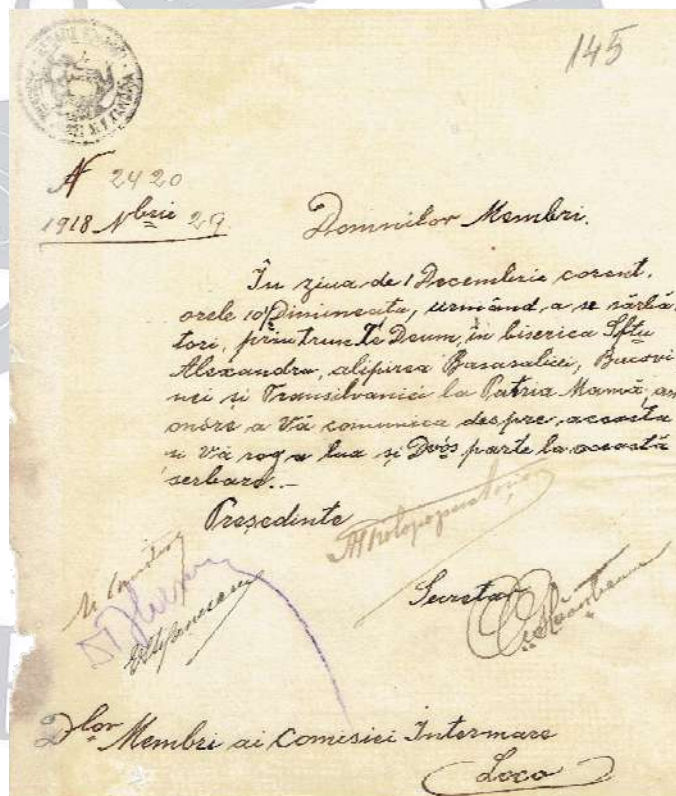 145
N 2420
1918 Nbrie 29
Domnilor Membri.
În ziua de 1 Decembrie corent.
orele 10 dimineața, urmând a se sărbă
tori, printrun Te Deum, în biserica Sftu
Alexandru, alipirea Basarabiei, Bucovi
nei și Transilvaniei la Patria Mamă, am
onore a Vă comunica despre aceasta
si Vă rog a lua și Dvós parte la această
serbare.-
Președinte
Secretar
Dlor Membri ai Comisiei Intermare
Loco